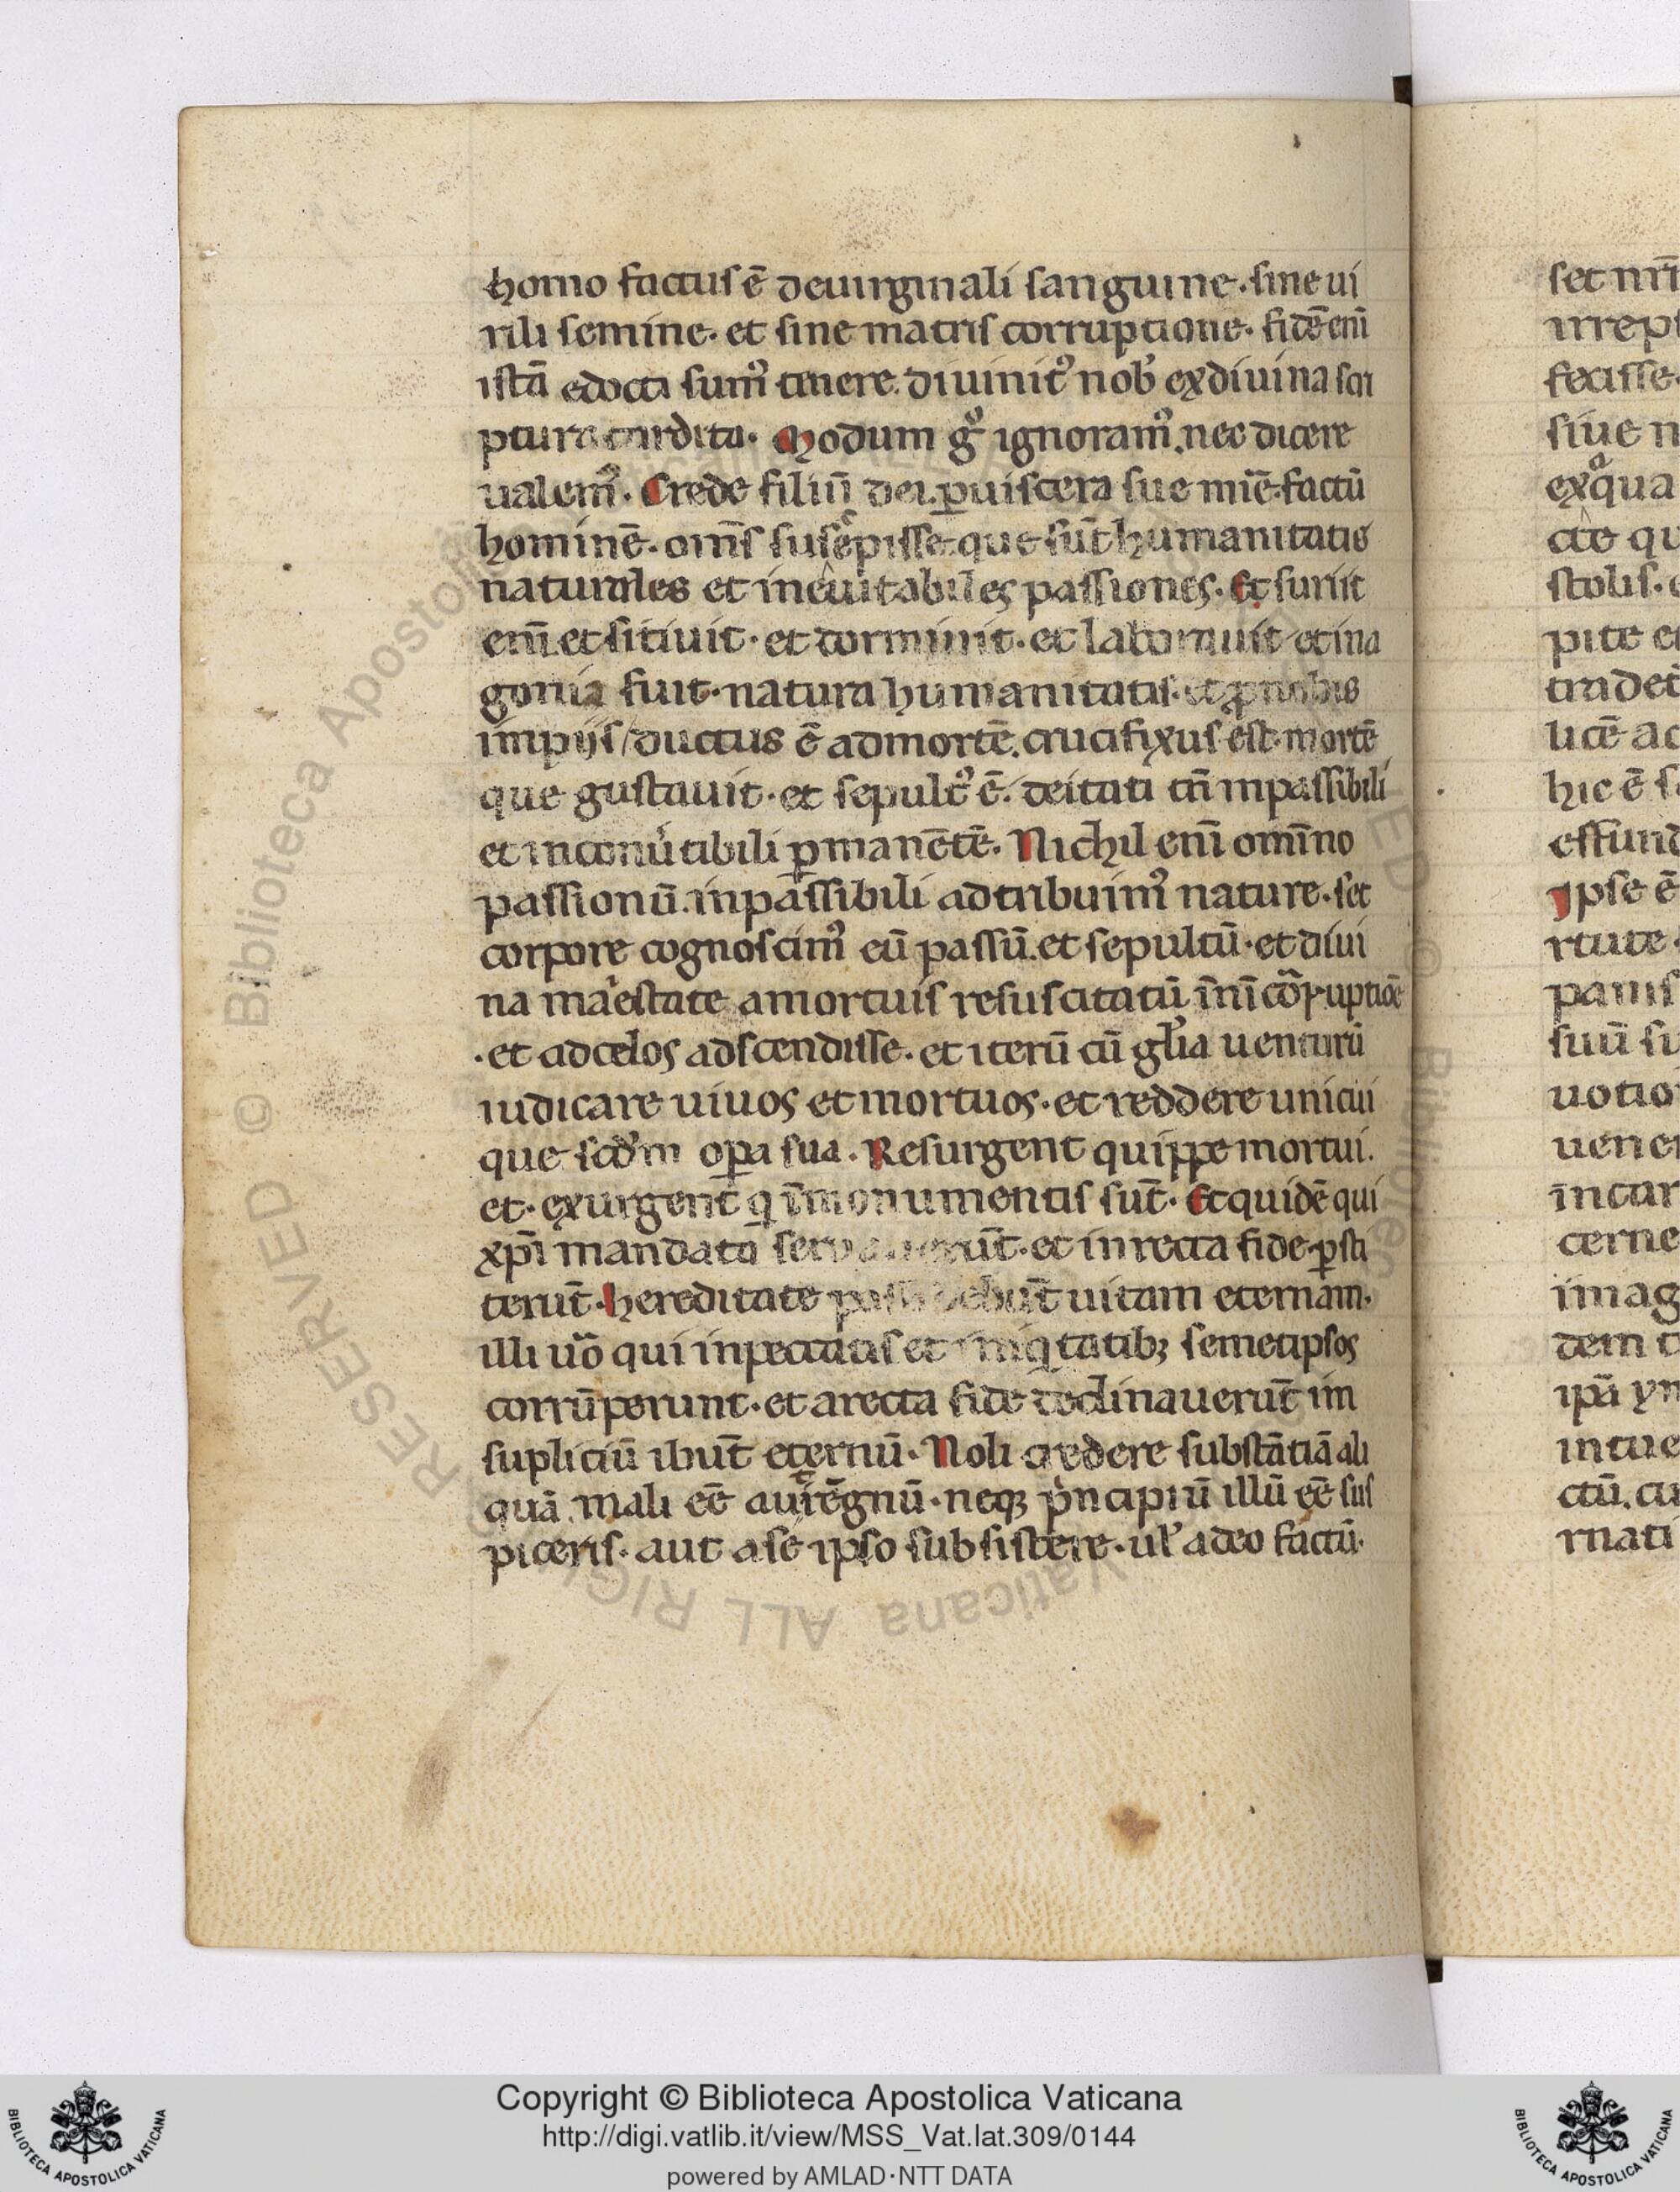 homo factus ē de uirginali sanguine. sine ui
rili semine. et sine matris corruptione. fidē enī
istā edocti sumꝰ tenere. diuinitꝰ nob̓ ex diuina scri
ptura tradita. Modum gͦ ignoramꝰ. nec dicere
ualemꝰ. Crede filiū dei. ꝑ uiscera sue mīe. factū
hominē. om̄s suscepisse. que sūt humanitatis
naturales et ineuitabiles passiones. Esuriit
enī et sitiuit. et dormiuit. et laborauit et in a
gonia fuit. natura humanitatis. et ꝓ nobis
impijs / ductus ē ad mortē. crucifixus est. mortē
que gustauit. et sepultꝰ ē. deitati tn̄ inpassibili
et inconutibili ꝑmanētē. Nichil enī omīno
passionū. inpassibili adtribuimꝰ nature. set
corpore cognoscimꝰ eū passū. et sepultū. et diui
na maiestate a mortuis resuscitatū. īnī corruptiōe
. et ad celos adscendisse. et iterū cū gl̓ia uenturū
iudicare uiuos et mortuos. et reddere unicui
que scd̓m oꝑa sua. Resurgent quippe mortui.
et. exurgent q̄ ī monumentis sūt. Et quidē qui
xp̄i mandata seruauerūt. et in recta fide ꝑsti
terūt. hereditate possidebūt uitam eternam.
illi uō qui in peccatis et iniqͥtatibꝫ semetipsos
corrūperunt. et a recta fide declinauerūt im
supliciū ibūt eternū. Noli credere substātiā ali
quā mali eē aut rēgnū. neqꝫ pͥncipiū illū eē sus
piceris. aut a sē ipso subsistere. ul̓ a deo factū.
set nr̄i
irrept
fecisse.
siue n
ex qua
cte qu
stolis. e
pite et
tradet
licē ac
hic ē s
effund
Ipse ē
rtute
panis
suū su
uotio
uener
incar
cerne
imag
dem t
ipā yn
intue
ctū. cu
rnati
© Biblioteca Apostolica Vaticana ALL RIGHTS RESERVED
BIBLIOTECA APOSTOLICA VATICANA
Copyright © Biblioteca Apostolica Vaticana
http://digi.vatlib.it/view/MSS_Vat.lat.309/0144
powered by AMLAD·NTT DATA
BIBLIOTECA APOSTOLICA VATICANA